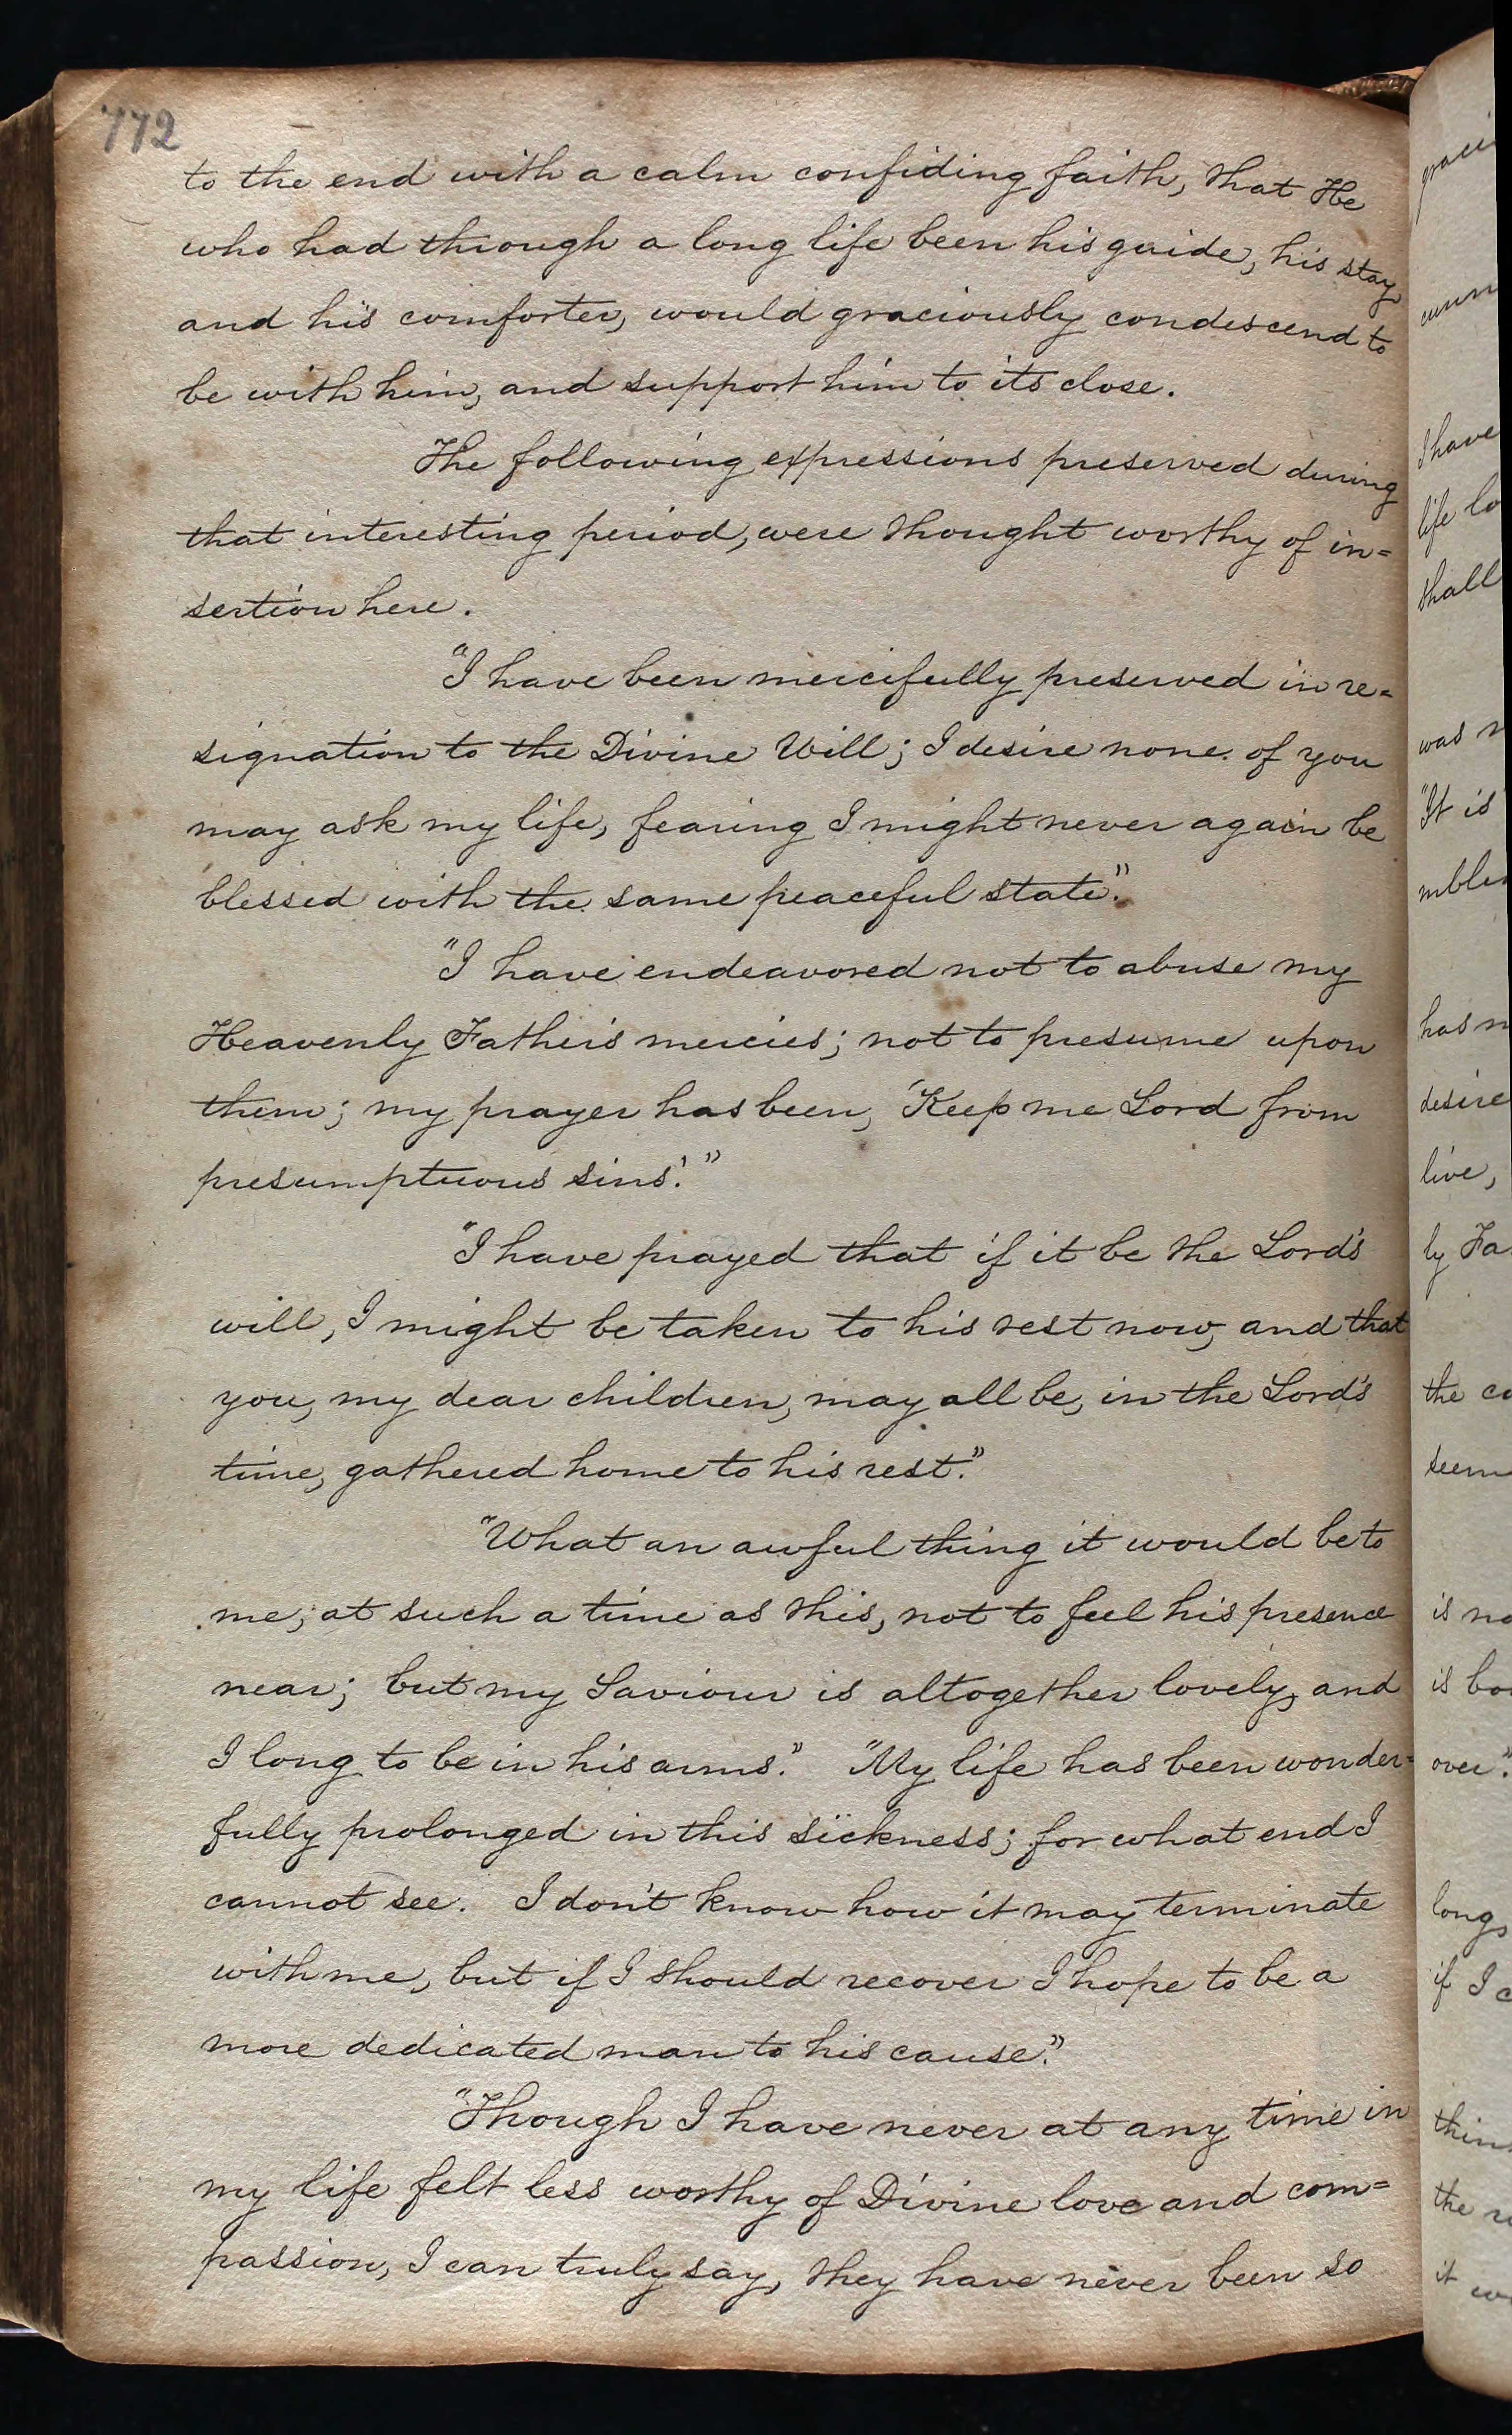 772
to the end with a calm confiding faith, that He
who had through a long life been his guide, his stay
and his comforter, would graciously condescend to
be with him, and support him to its close.
The following expressions preserved during
that interesting period, were thought worthy of in=
sertion here.
"I have been mercifully preserved in re=
signation to the Divine Will; I desire none of you
may ask my life, fearing I might never again be
blessed with the same peaceful state."
"I have endeavored not to abuse my
Heavenly Father's mercies; not to presume upon
them; my prayer has been, 'Keep me Lord from
presumptuous sins.'"
"I have prayed that if it be the Lord's
will, I might be taken to his rest now, and that
you, my dear children, may all be, in the Lord's
time, gathered home to his rest."
"What an awful thing it would be to
me, at such a time as this, not to feel his presence
near; but my Saviour is altogether lovely, and
I long to be in his arms." "My life has been wonder=
fully prolonged in this sickness; for what end I
cannot see. I don't know how it may terminate
with me, but if I should recover I hope to be a
more dedicated man to his cause."
"Though I have never at any time in
my life felt less worthy of Divine love and com=
passion, I can truly say, they have never been so
I have
life lo
shall
was n
"It is
has n
desire
live,
ly Fa
the co
seem
is no
is bo
over."
long,
if I c
thin
the r
it w